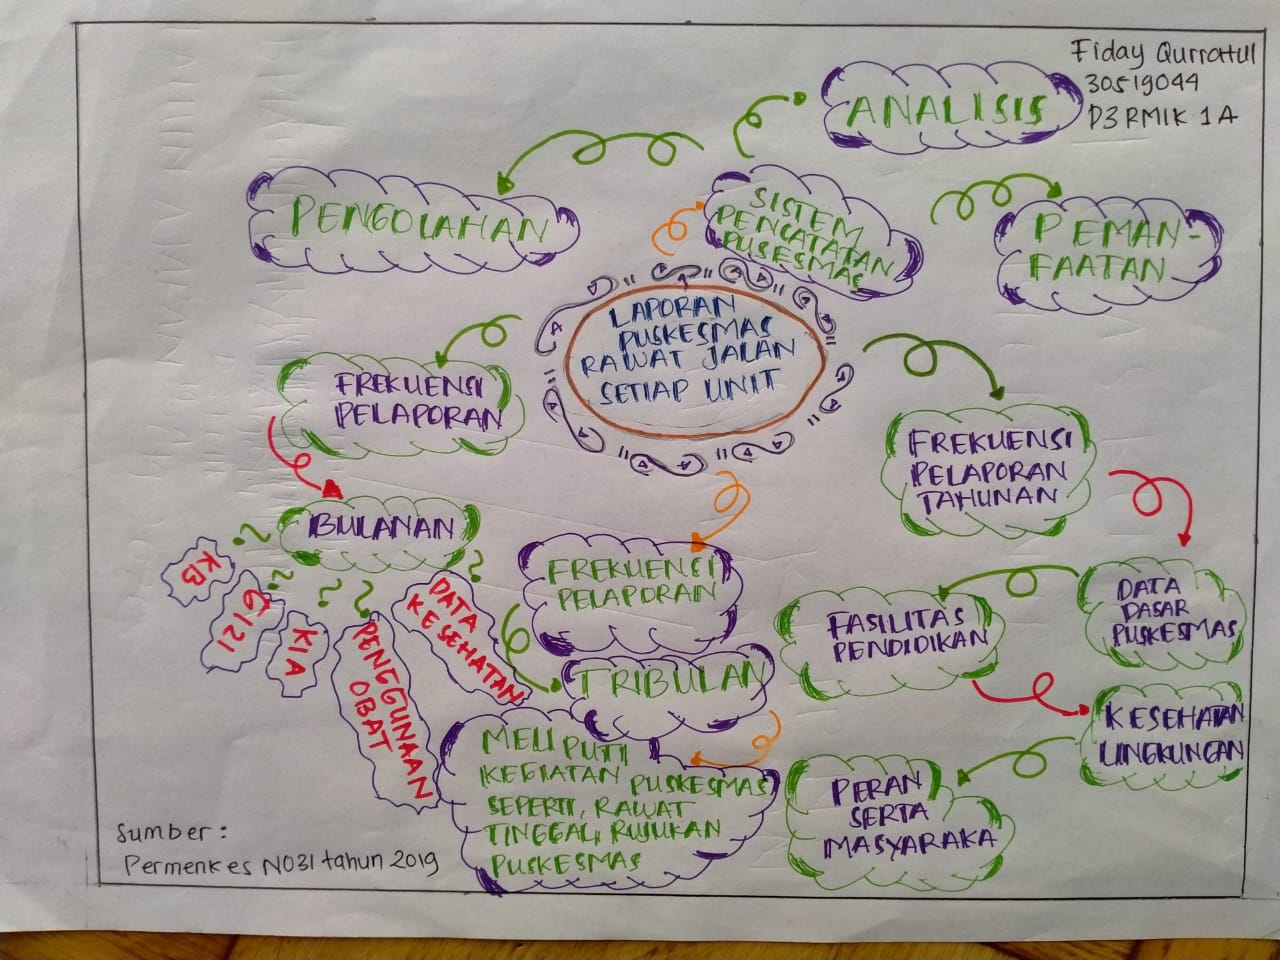 Fiday Qurrotul
30519044
D3 RMIK 1A
ANALISIS
PENGOLAHAN
SISTEM
PENCATATAN
PUSESMAS
PEMAN-
FAATAN
LAPORAN
PUSKESMAS
RAWAT JALAN
SETIAP UNIT
FREKUENSI
PELAPORAN
BULANAN
KB
GIZI
KIA
PENGGUNAAN
OBAT
DATA
KESEHATAN
FREKUENSI
PELAPORAN
TRIBULAN
MELIPUTI
KEGIATAN PUSKESMAS
SEPERTI, RAWAT
TINGGAL, RUJUKAN
PUSKESMAS
FREKUENSI
PELAPORAN
TAHUNAN
DATA
DASAR
PUSKESMAS
FASILITAS
PENDIDIKAN
KESEHATAN
LINGKUNGAN
PERAN
SERTA
MASYARAKA
Sumber :
Permenkes NO31 tahun 2019